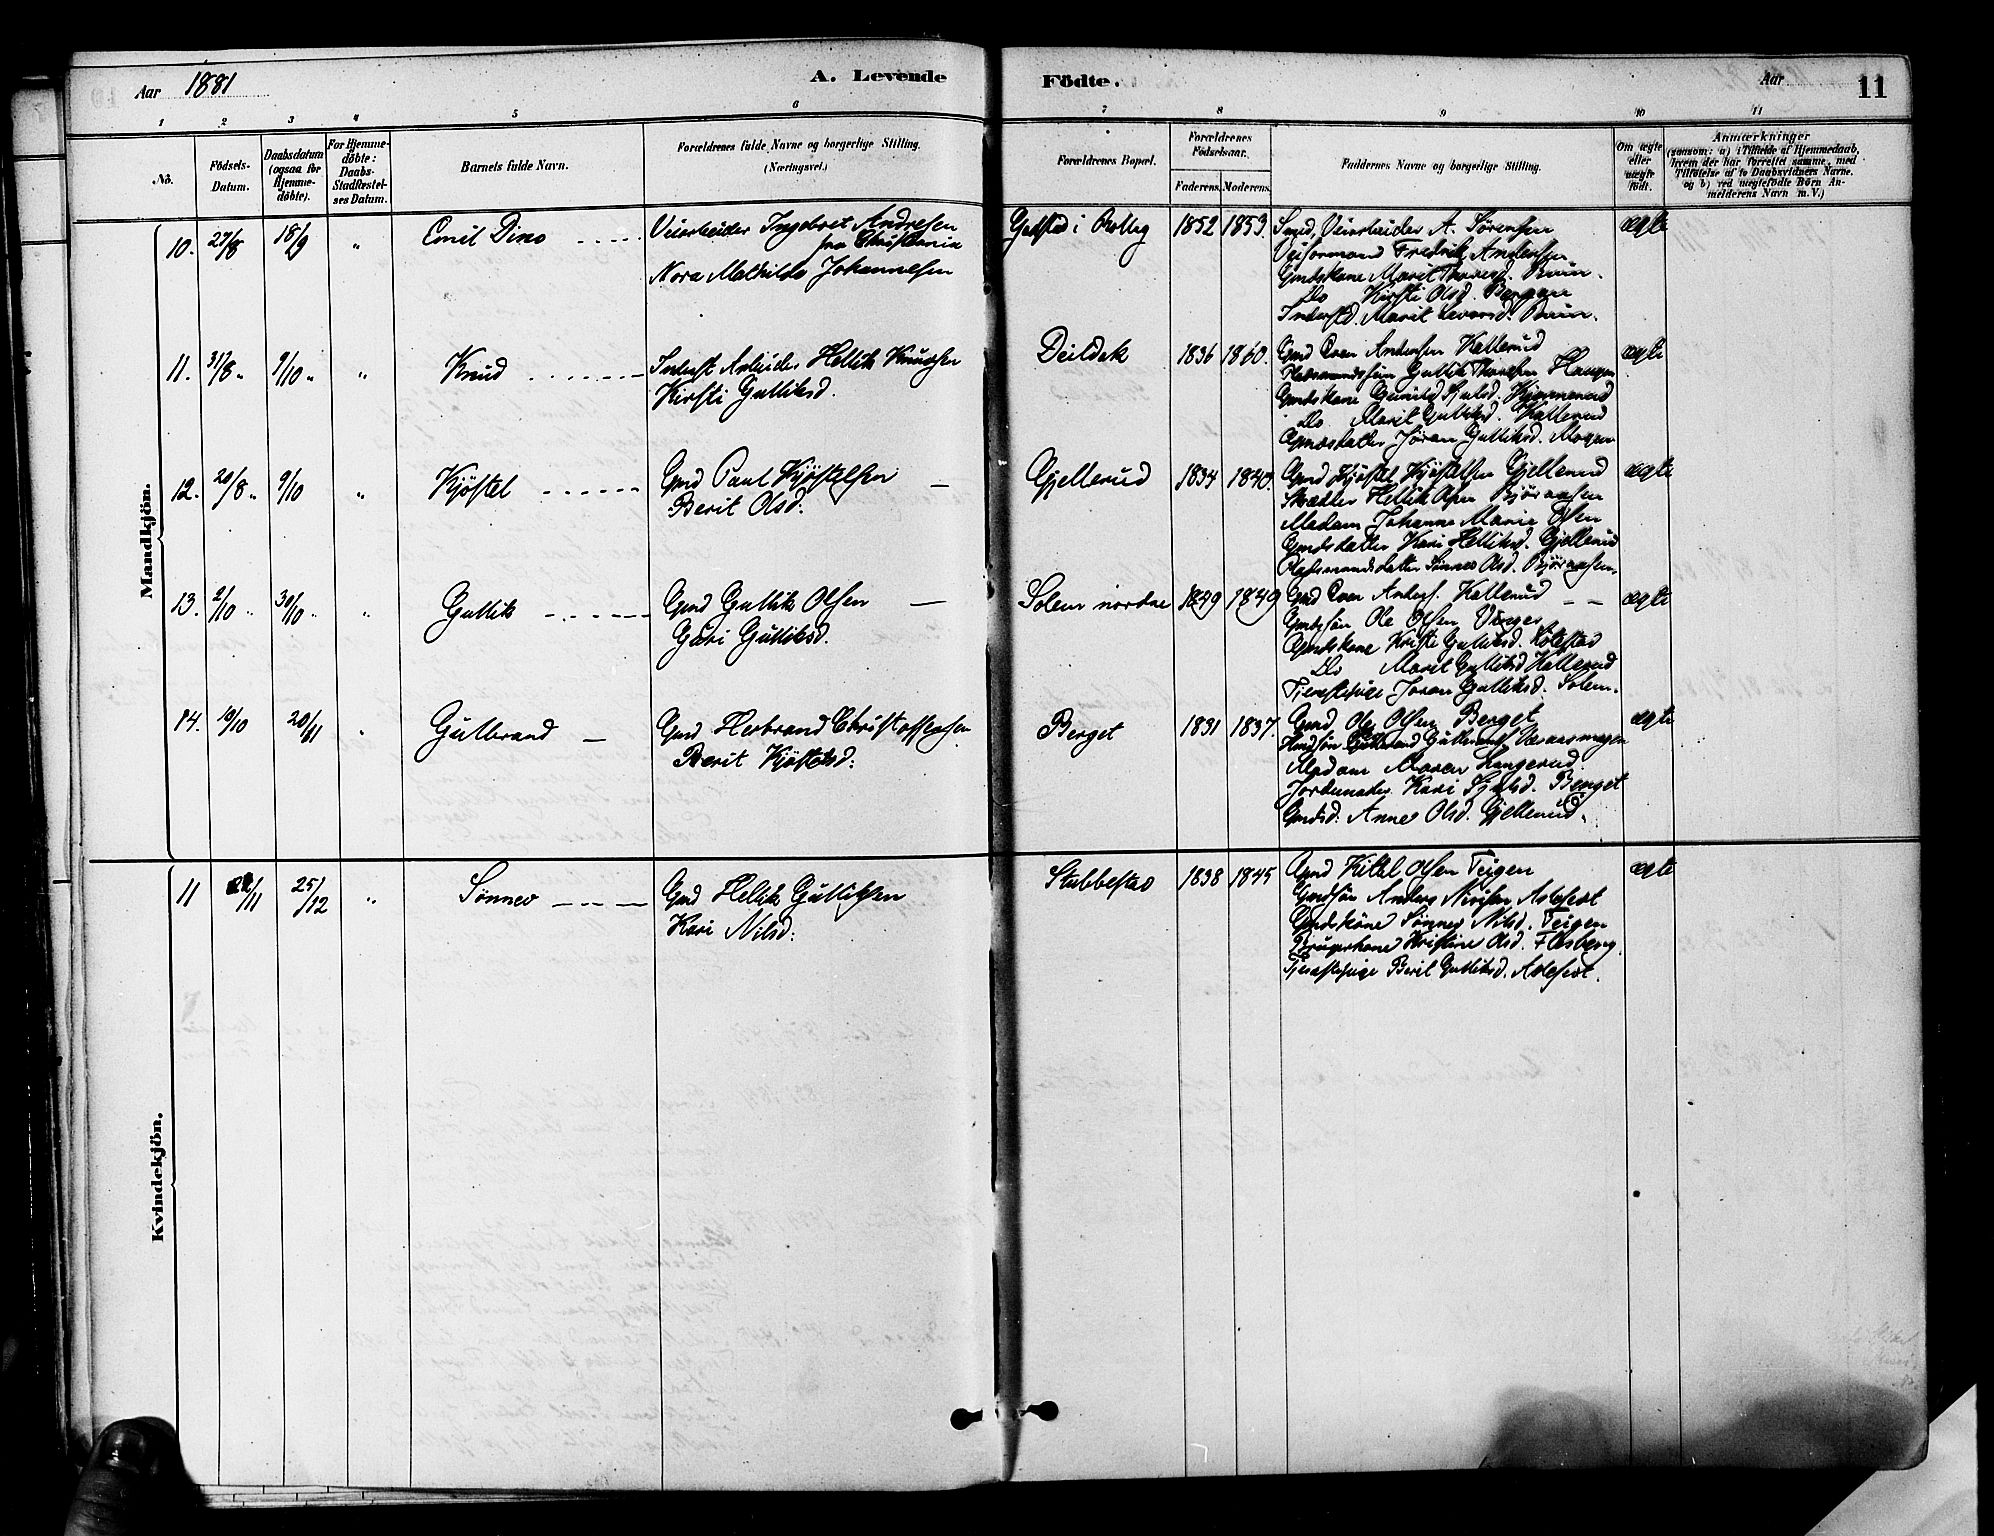 Aar 1881
A. Levende Födte.
Aar
11
1 2 3 4 5 6 7 8 9 10 11
No.
Födsels-Datum.
Daabsdatum (ogsaa for Hjemme-döbte).
For Hjemme-döbte: Daabs-Stadfæstel-ses Datum.
Barnets fulde Navn.
Forældrenes fulde Navne og borgerlige Stilling.
(Næringsvei.)
Forældrenes Bopæl.
Forældrenes Födselsaar.
Faderens. Moderens.
Faddernes Navne og borgerlige Stilling.
Om ægte eller uægte födt.
Anmærkninger
(saasom: a) i Tilfælde af Hjemmedaab,
hvem der har forrettet samme, med
Tilföielse af to Daabsvidners Navne.
og b) ved uægtefödte Börn An-
melderens Navn m. V.)
Mandkjön.
10. 27/8 18/9 " Emil Dino Veiarbeider Ingebret Andresen
fra Christiania
Nora Mathilde Johannesen
i Rollag 1852 1853. Smed, Veiarbeider A. Sørensen ægte
Veiformand Fredrik Andersen
Gmdskone Marit Thoresd. Bruin.
Do Kirsti Olsd. Bergan
Inderstd. Marit Bruin.
11. 31/8 " 9/10 " " Knud Inderst Arbeider Hellik Knudsen
Kirsti Gulliksd.
Deildek 1836 1860. Gmd Even Andersen Kallerud ægte
Pladsmandssøn Gullik Thoresen Haugen
Gmdskone Gunild Sjulsd.
Do Marit Gulliksd. Kallerud
Gmdsdatter Jøran Gulliksd. Mogen
12. 20/8 " 9/10 " Kjøstel Gmd Paul Kjøstelsen
Berit Olsd.
Gjellerud 1834 1840. Gmd Kjøstel Kjøstelsen Gjellerud ægte
Skrædder Hellik Bjøraasen
Madam Johanne Marie Olsen
Gmdsdatter Kari Helliksd. Gjellerud
Pladsmandsdatter Sønnev Olsd. Bjøraasen.
13. 2/10 " 30/10 " " Gullik Gmd Gullik Olsen
Guri Gulliksd.
Solem nordre 1849 1849 Gmd Even Anders. Kallerud ægte
Gmdsøn Ole Olsen
Gmdskone Kristi Gulliksd.
Do Marit Gulliksd Kallerud
Tjenestepige Joran Gulliksd. Solem.
14. 19/10 20/11 " Gulbrand Gmd Herbrand Christoffersen
Berit Kjøstelsd:
Berget 1831 1837. Gmd Ole Olsen Berget ægte
Gulbrand
Madam Maren Langerud.
Jordemoder Kari Sjulsd. Berget
Gmdsd. Anne Olsd. Gjellerud.
Kvindekjön.
11 /11 25/12 " Sønnev Gmd Hellik Gulliksen
Kari Nilsd:
Stubbestad 1838 1845 Gmd Kittel Olsen Teigen ægte
Gmdsøn Anders
Gmdskone Sønnev Nilsd. Teigen
Brugerkone Kristine Olsd. Flesberg
Tjenestepige Beril Gulliksd.